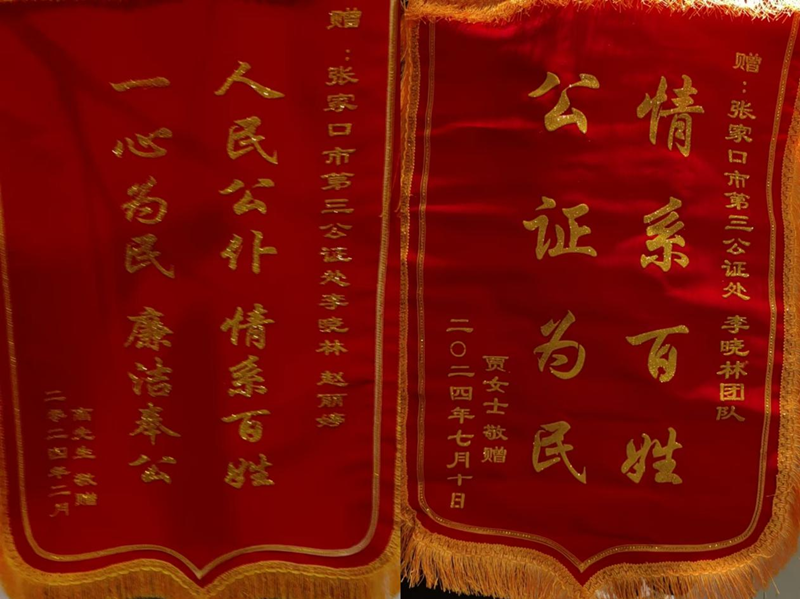 赠：张家口市第三公证处李晓林 赵丽婷
人民公仆 情系百姓
一心为民 廉洁奉公
先生 敬赠
二零二四年二月
赠：张家口市第三公证处 李晓林团队
情系百姓
公证为民
贾女士 敬赠
二〇二四年七月十日